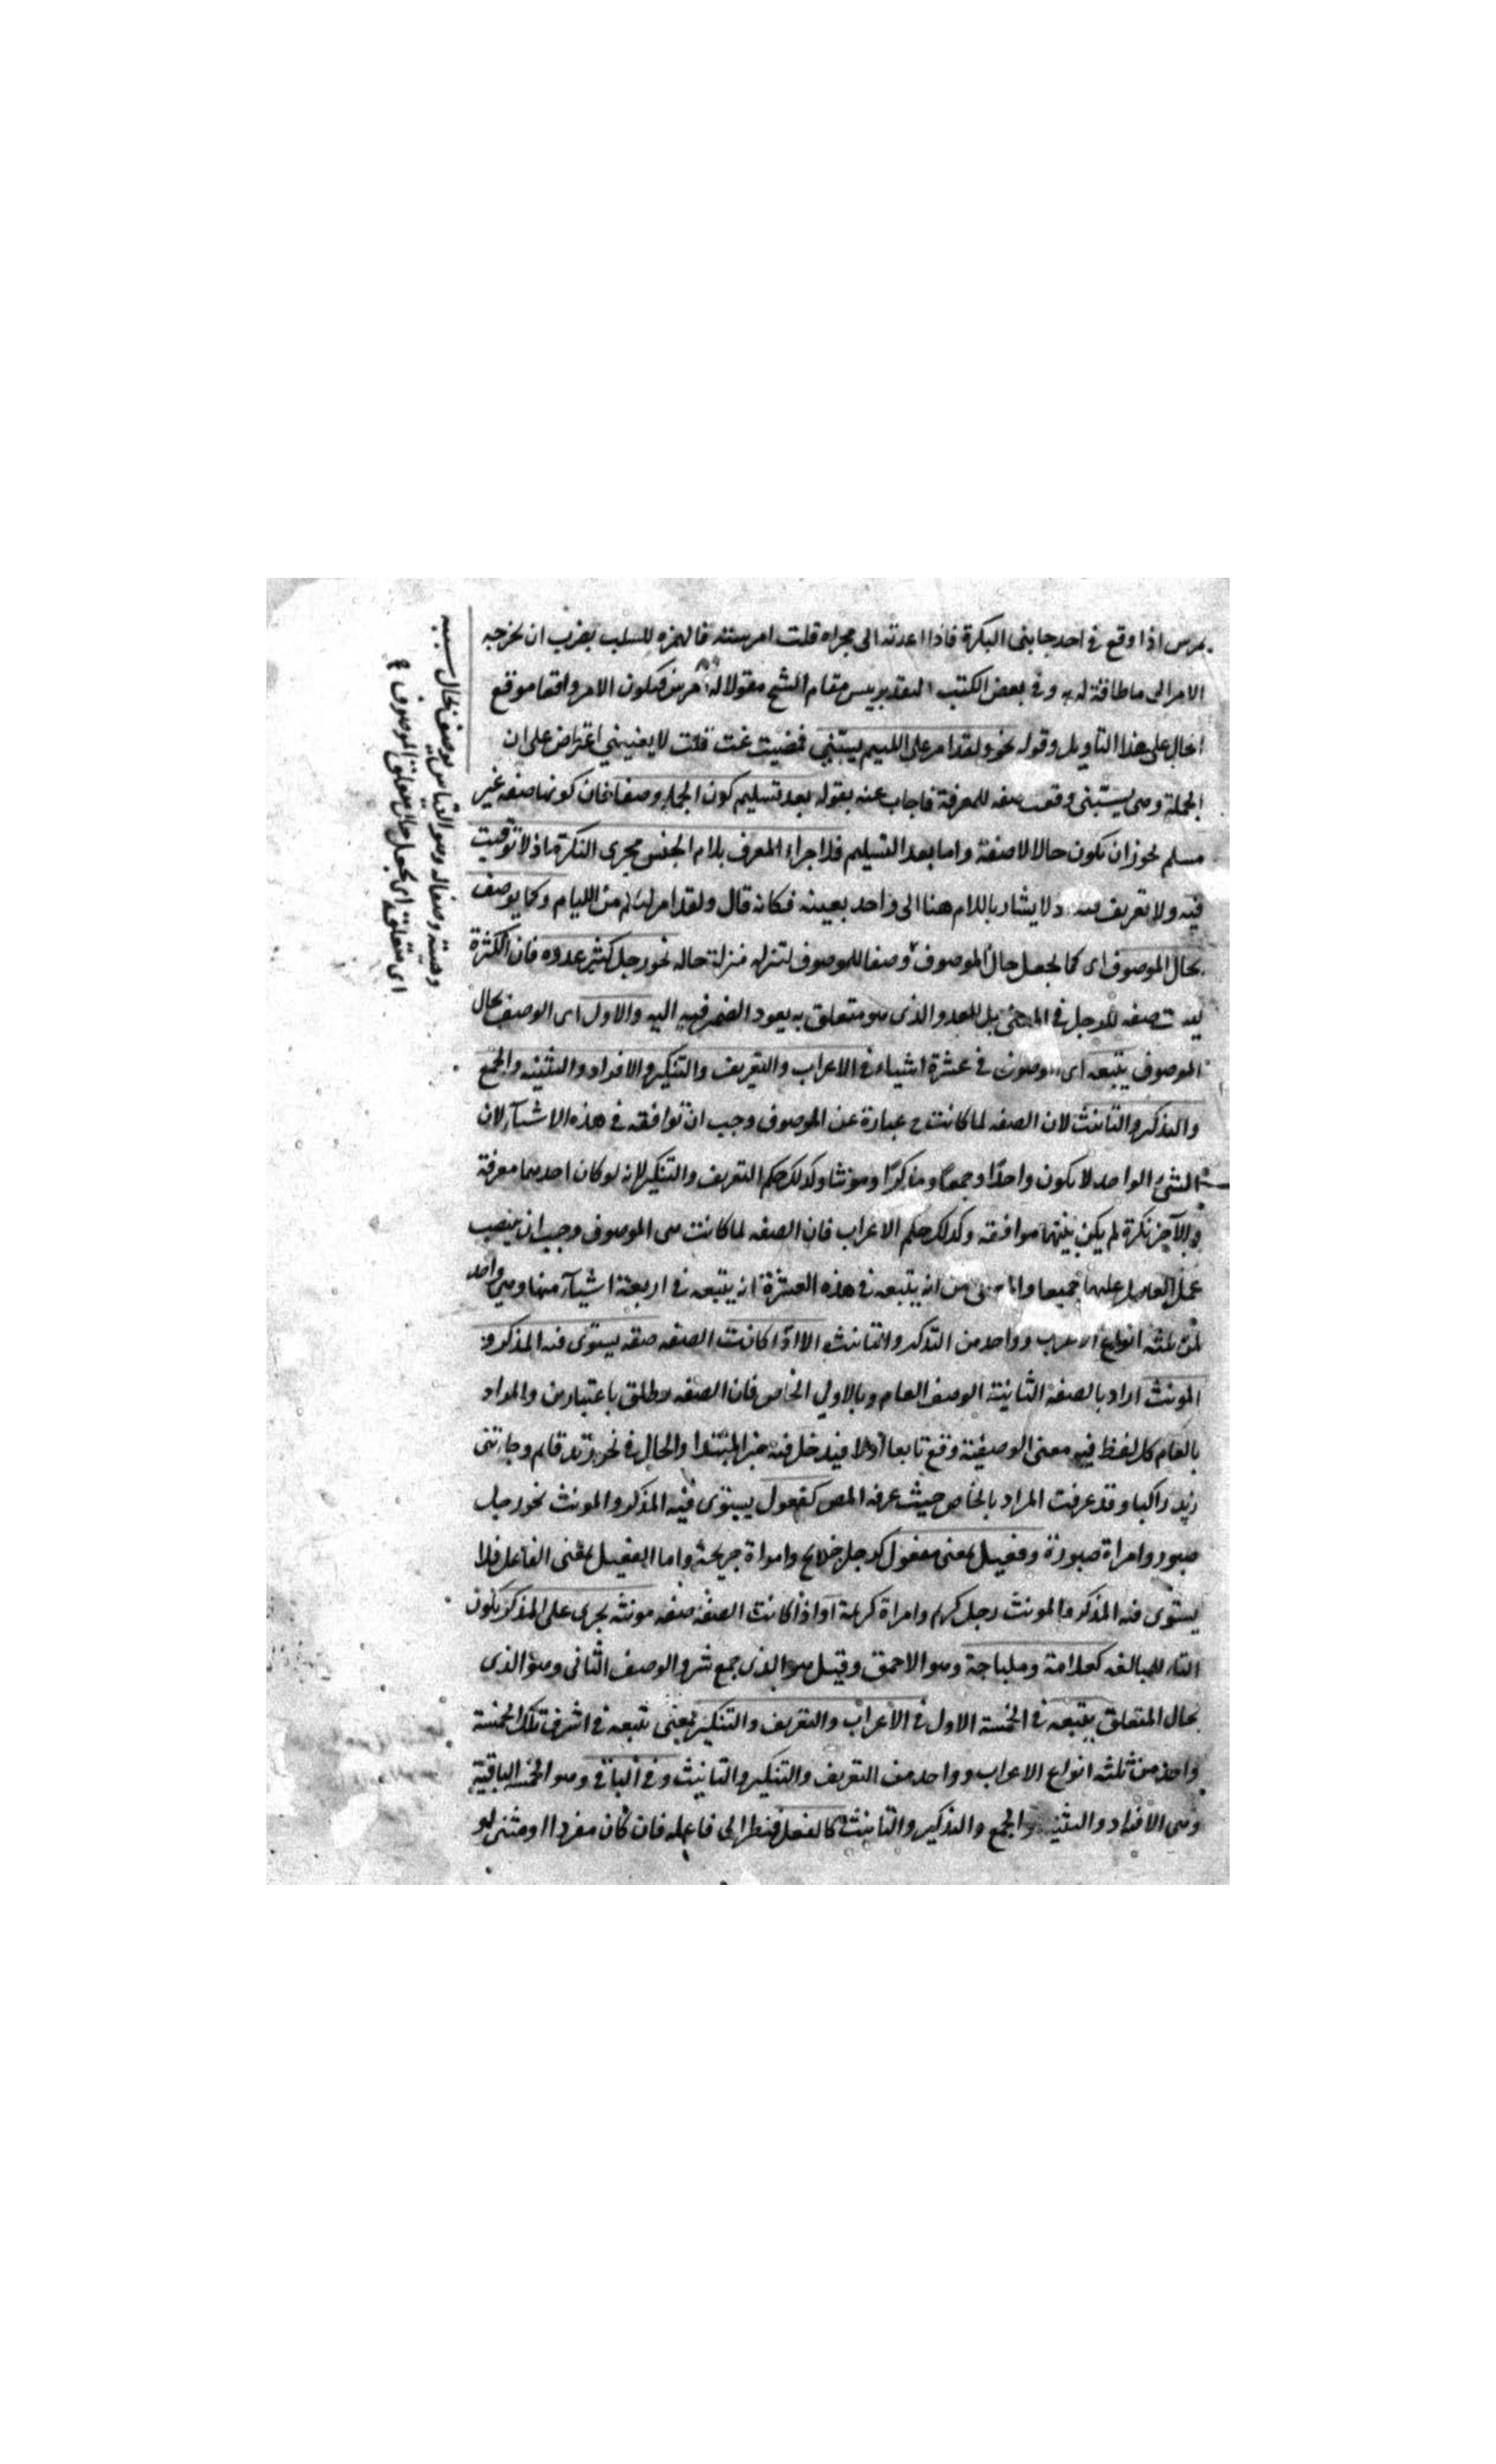 يمرس اذا وقع في احد جانبي البكرة فاذا اعدته الى مجراه قلت امرسته فالهمزه للسلب بقرب ان يخرجه
الامر الى ما طاقة له به وفي بعض الكتب التقدير بيس مقام الشيخ مقولا له امرس فيكون الامر واقعا موقع
الحال على هذا التاويل وقوله نحو ولقد امر على اللييم يسبني فمضيت ثمت قلت لا يعنيني اعتراض على ان
الجملة وهي يسبني وقعت صفه للمعرفة فاجاب عنه بقوله بعد تسليم كون الجمله وصفا فان كونها صفه غير
مسلم لجواز ان تكون حالا لا صفة واما بعد التسليم فلاجراء المعرف بلام الجنس مجرى النكرة اذ لا توقيت
فيه ولا تعريف ولا يشار باللام هنا الى واحد بعينه فكانه قال ولقد امر لئيم من الليام وكما يوصف
بحال الموصوف اى كما يجعل حال الموصوف وصفا للموصوف لتنزله منزلة حاله نحو رجل كثير عدوه فان الكثرة
ليست صفه للرجل في المعنى بل للعدو الذى هو متعلق به يعود الضمير فيه اليه والاول اى الوصف بحال
الموصوف يتبعه اى الموصوف في عشرة اشياء في الاعراب والتعريف والتنكير والافراد والتثنيه والجمع
والتذكير والتانيث لان الصفه لما كانت ح عبارة عن الموصوف وجب ان توافقه في هذه الاشيآء لان
الشئ الواحد لا يكون واحدا وجمعا ومذكرا ومونثا وكذلك حكم التعريف والتنكير لانه لو كان احدهما معرفة
والآخر نكرة لم يكن بينهما موافقة وكذلك حكم الاعراب فان الصفه لما كانت هى الموصوف وجب ان ينصب
عمل العامل عليهما جميعا من انه يتبعه في هذه العشرة انه يتبعه في اربعة اشيآء منها وهي واحد
من ثلثه انواع الاعراب وواحد من التذكير والتانيث الا اذا كانت الصفه صفه يستوى فيه المذكر و
المونث اراد بالصفه الثانية الوصف العام وبالاولى الخاص فان الصفه يطلق باعتبارين والمراد
بالعام كل لفظ فيه معنى الوصفية وقع تابعا اولا فيدخل فيه خبر المبتدا والحال في نحو زيد قايم وجاءنى
زيد راكبا وقد عرفت المراد بالخاص حيث عرفه المص كفعول يستوى فيه المذكر والمونث نحو رجل
صبور وامراة صبورة وفعيل بمعنى مفعول كرجل جريح وامراة جريحة واما الفعيل بمعنى الفاعل فلا
يستوى فيه المذكر والمونث رجل كريم وامراة كريمة او اذا كانت الصفة صفه مونثه يجرى على المذكر بكون
التاء للمبالغه كعلامة وهلباجة وهو الاحمق وقيل هو الذى جمع شر والوصف الثانى وهو الذى
بحال المتعلق يتبعه في الخمسة الاول في الاعراب والتعريف والتنكير يعنى يتبعه في اثنين من تلك الخمسة
واحد من ثلثه انواع الاعراب وواحد من التعريف والتنكير والتانيث وفى الباقى وهو الخمسه الباقية
وهى الافراد والتثنيه والجمع والتذكير والتانيث كالفعل فينظر الى فاعله فان كان مفردا او مثنى او
وهيئة وصفاله وهو القياس يوصف بحال سببه
اى متعلقه اى يجعل حال متعلق الموصوف